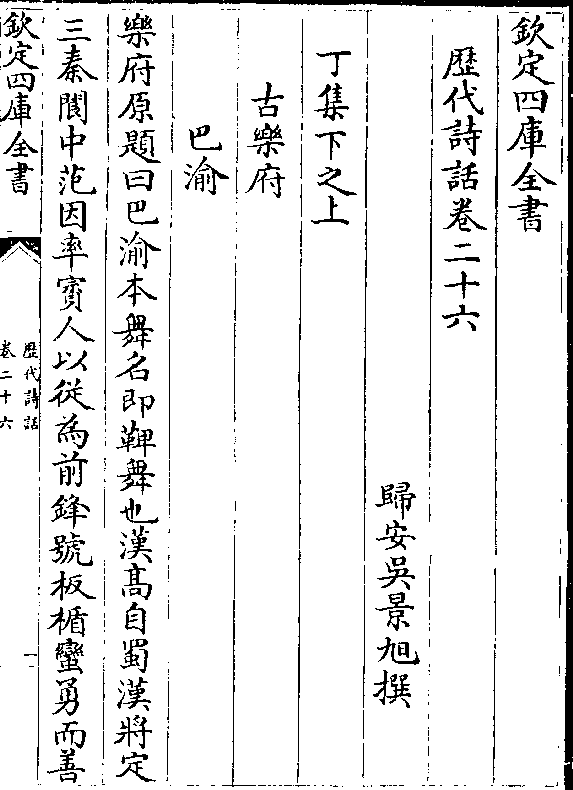 欽定四庫全書
歷代詩話卷二十六
歸安吳景旭撰
丁集下之上
古樂府
巴渝
樂府原題曰巴渝本舞名即鞞舞也漢髙自蜀漢將定
三秦閬中范因率賨人以從為前鋒號板楯蠻勇而善
欽定四庫全書
歷代詩話
卷二十六
一